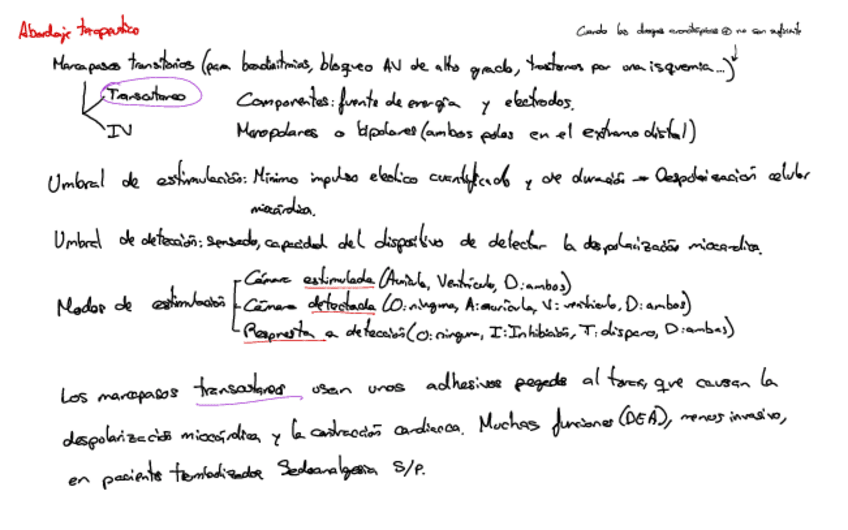 Abordaje terapeutico
Cuando las drogas cronotrópicas ⊕ no son suficiente
Marcapasos transitorios (para bradiarritmias, bloqueo AV de alto grado, trastornos por una isquemia...)
Transcutaneo Componentes: fuente de energía y electrodos.
IV Monopolares o bipolares (ambos polos en el extremo distal)
Umbral de estimulación: Mínimo impulso electico cuantificado y de duración → Despolarización celular
miocárdica.
Umbral de detección: sensado, capacidad del dispositivo de detectar la despolarización miocardica.
Cámara estimulada (Aurícula, Ventriculo, D: ambos)
Modos de estimulación Cámara detectada (O: ninguna, A: aurícula, V: ventriculo, D: ambos)
Respuesta a detección (O: ninguna, I: Inhibición, T: disparo, D: ambas)
Los marcapasos transcutaneos usan unos adhesivos pegado al torax, que causan la
despolarización miocárdica y la contracción cardiaca. Muchas funciones (DEA), menos invasivo,
en paciente Sedoanalgesia S/P.